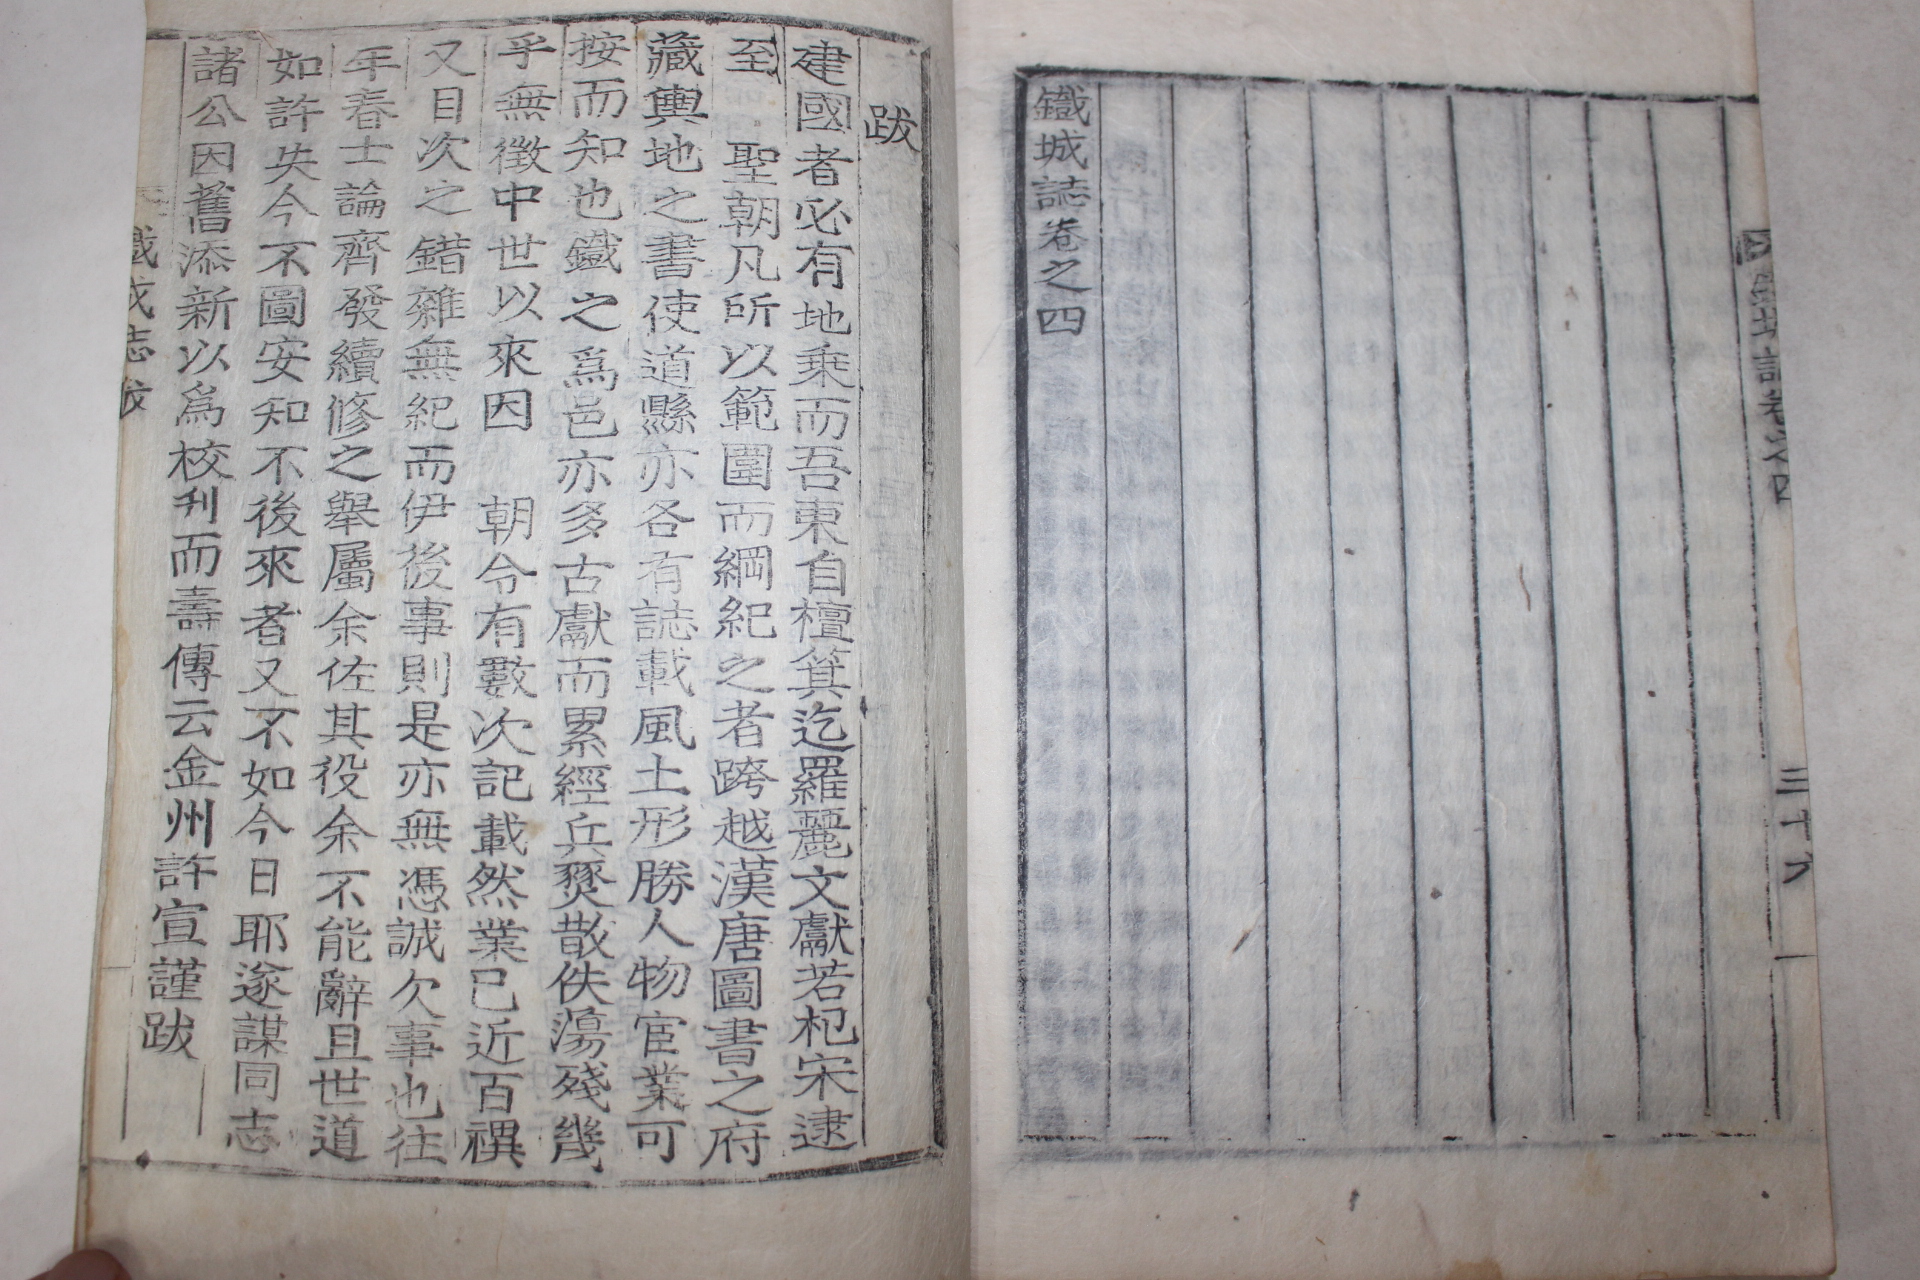 鐵城誌卷之四
三十九
跋
建國者必有地乗而吾東自檀箕迄羅麗文獻若杞宋逮
至 聖朝凡所以範圍而綱紀之者跨越漢唐圖書之府
藏輿地之書使道縣亦各有誌載風土形勝人物宦業可
按而知也鐵之爲邑亦多古獻而累經兵燹散佚蕩殘幾
乎無徵中世以來因 朝令有數次記載然業已近百禩
又目次之錯雜無紀而伊後事則是亦無憑誠欠事也往
年春士論齊發續修之舉屬余佐其役余不能辭且世道
如許失今不圖安知不後來者又不如今日耶遂謀同志
諸公因舊添新以爲校刋而壽傳云金州許宣謹跋